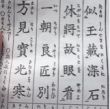 似王藏深石
休將故眼看
一朝良匠別
方見寶光寒